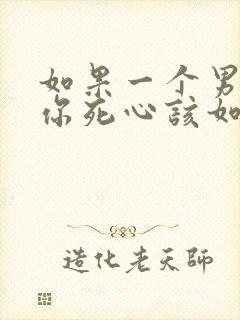 如果一个男
你死心该如
造化老天師